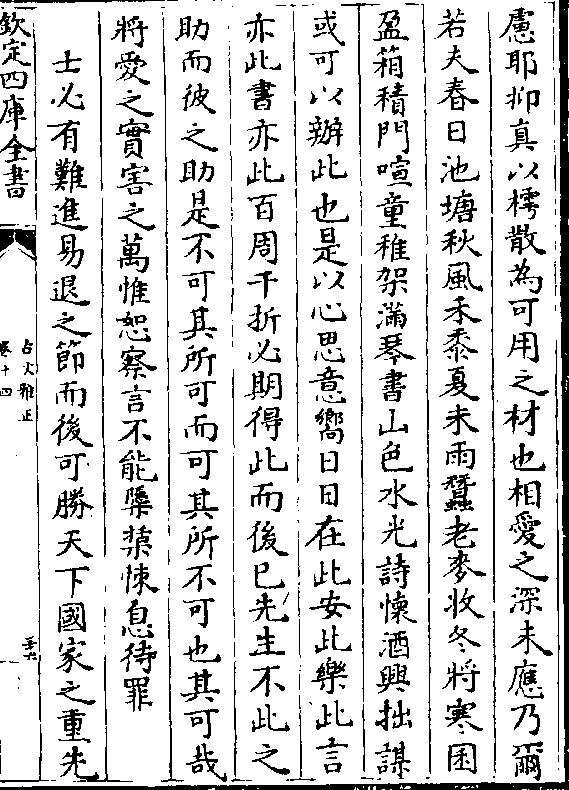 慮耶抑真以樗散為可用之材也相愛之深未應乃爾
若夫春日池塘秋風禾黍夏未雨蠶老麥收冬將寒囷
盈箱積門喧童稚架滿琴書山色水光詩懷酒興拙謀
或可以辦此也是以心思意嚮日日在此安此樂此言
亦此書亦此百周千折必期得此而後已先生不此之
助而彼之助是不可其所可而可其所不可也其可哉
將愛之實害之萬惟恕察言不能櫽栝悚息待罪
士必有難進易退之節而後可勝天下國家之重先
欽定四庫全書
古文雅正
卷十四